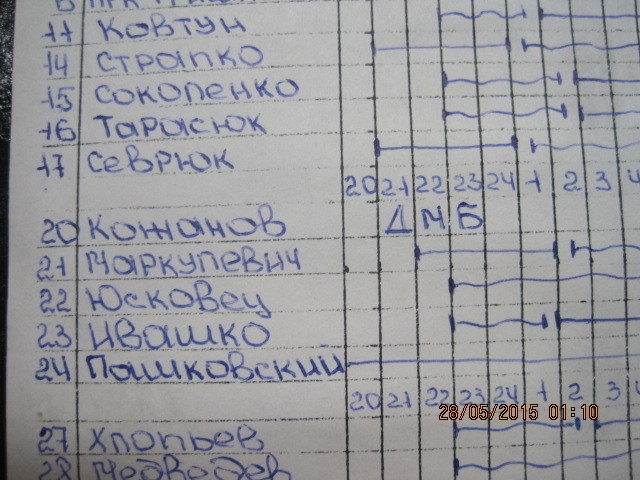 11 Ковтун
14 Страпко
15 Соколенко
16 Тарасюк
17 Севрюк
20 21 22 23 24 1 2 3
20 Кожанов Д М Б
21 Маркулевич
22 Юсковец
23 Ивашко
24 Пашковский
20 21 22 23 24 1 2 3
28/05/2015 01:10
27 Хлопьев
28 Медведев